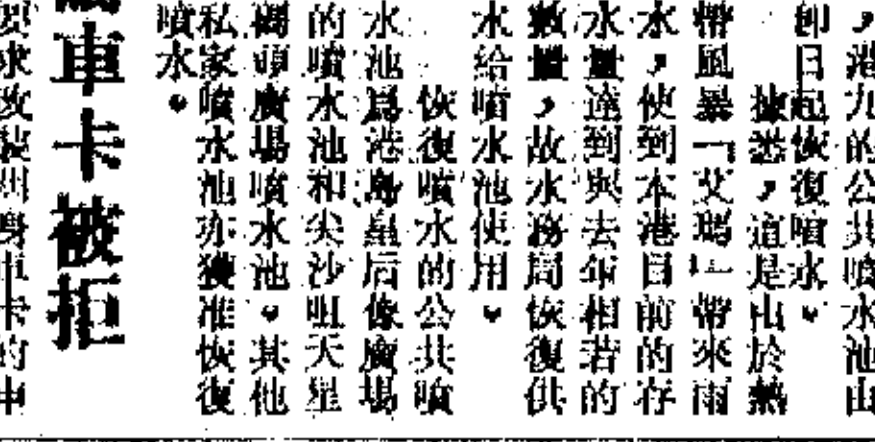 ，港九的公共噴水池由
卽日起恢復噴水。
據悉，這是由於熱
帶風暴「艾瑪」帶來雨
水，使到本港目前的存
水量，達到與去年相若的
數量，故水務局恢復供
水給噴水池使用。
恢復噴水的公共噴
水池爲港島皇后像廣場
的噴水池和尖沙咀天星
碼頭廣場噴水池。其他
私家噴水池亦獲准恢復
噴水。
車卡被拒
求改裝 身車卡的申